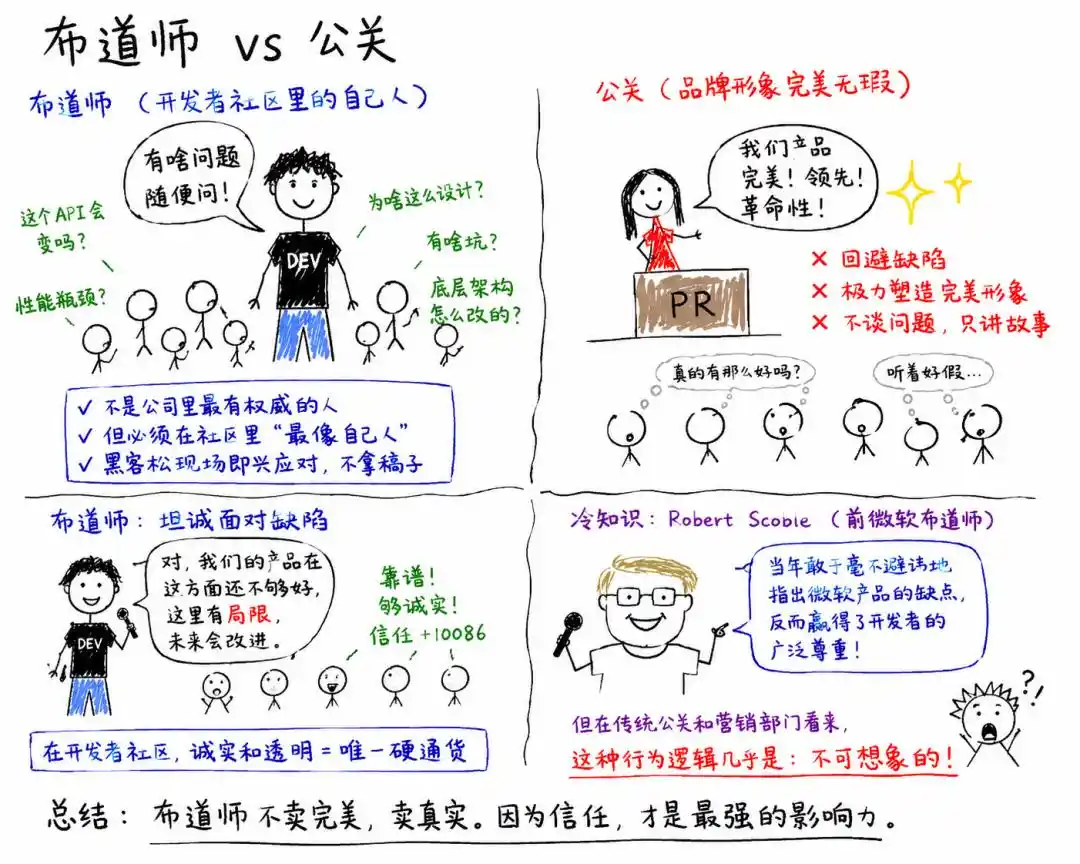 布道师 vs 公关
布道师（开发者社区里的自己人）
有啥问题
随便问！
这个API会
变吗？
性能瓶颈？
为啥这么设计？
有啥坑？
底层架构
怎么改的？
DEV
✓ 不是公司里最有权威的人
✓ 但必须在社区里“最像自己人”
✓ 黑客松现场即兴应对，不拿稿子
公关（品牌形象完美无瑕）
我们产品
完美！领先！
革命性！
PR
× 回避缺陷
× 极力塑造完美形象
× 不谈问题，只讲故事
真的有那么好吗？
听着好假...
布道师：坦诚面对缺陷
对，我们的产品在
这方面还不够好，
这里有局限，
未来会改进。
DEV
靠谱！
够诚实！
信任+10086
在开发者社区，诚实和透明＝唯一硬通货
冷知识：Robert Scoble（前微软布道师）
当年敢于毫不避讳地
指出微软产品的缺点，
反而赢得了开发者的
广泛尊重！
?!
但在传统公关和营销部门看来，
这种行为逻辑几乎是：不可想象的！
总结：布道师不卖完美，卖真实。因为信任，才是最强的影响力。